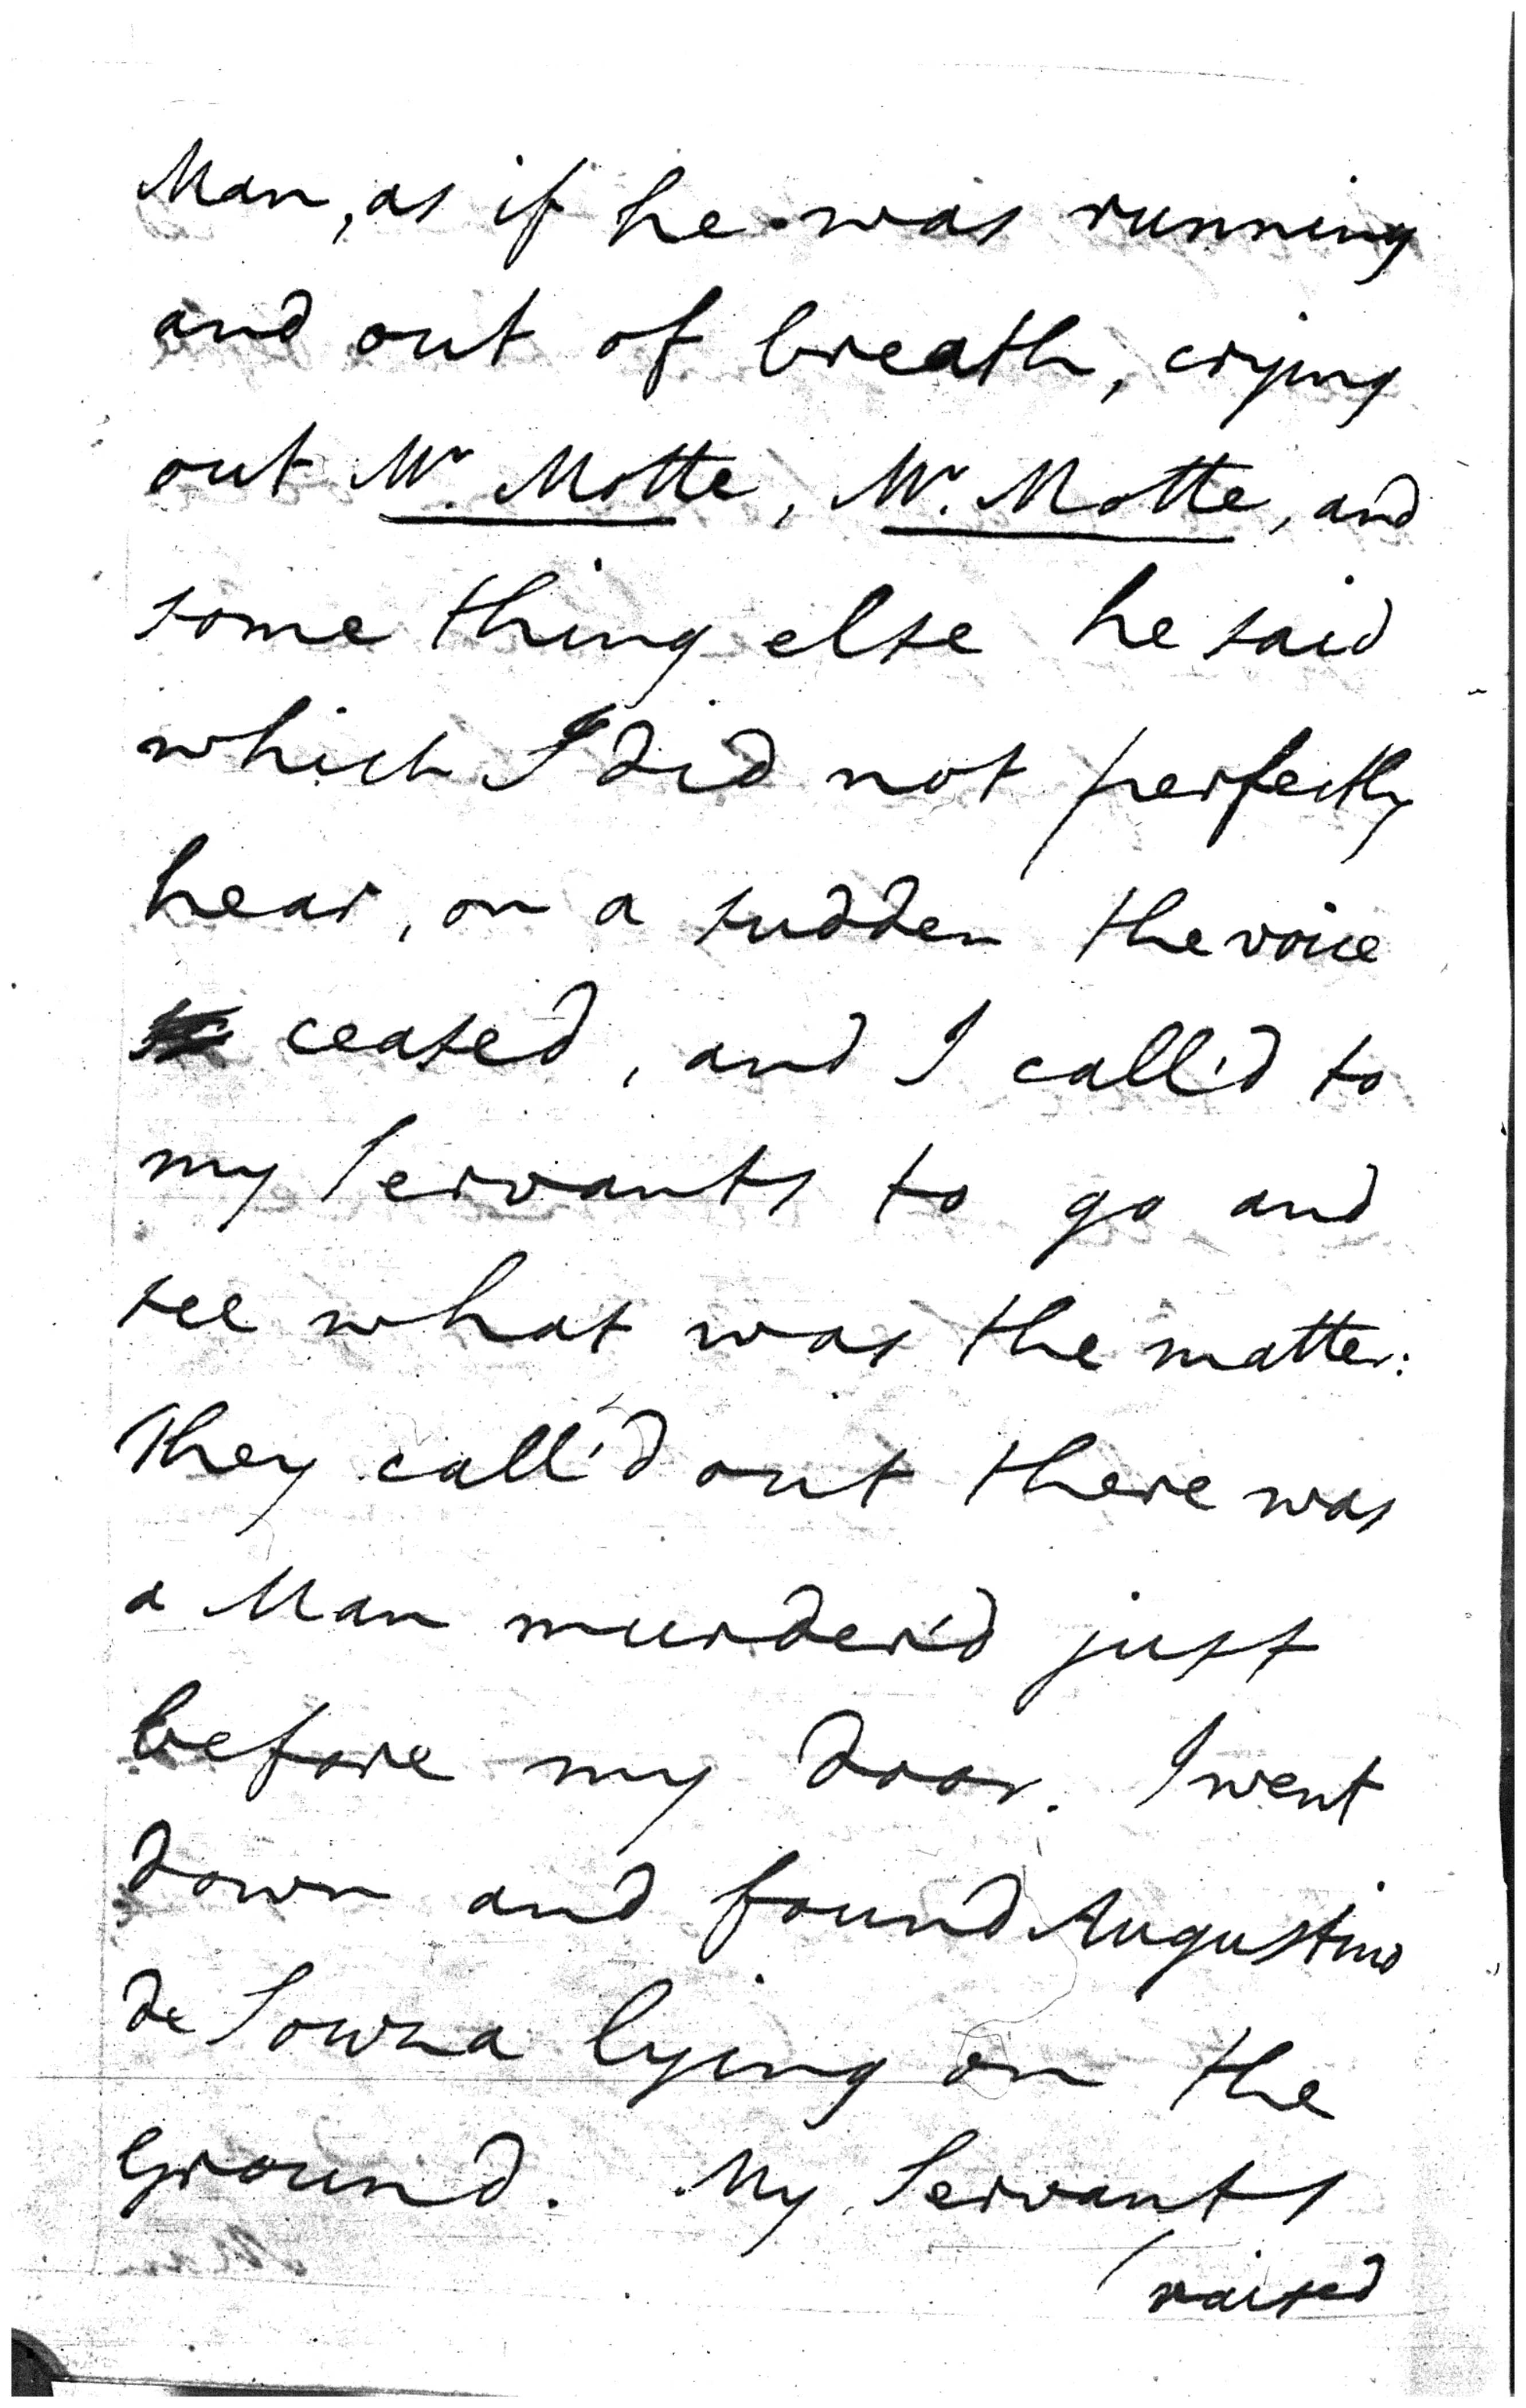 Man, as if he was running
and out of breath, crying
out Mr. Motte, Mr. Motte, and
some thing else he said
which I did not perfectly
hear, on a sudden the voice
ceased, and I call'd to
my Servants to go and
see what was the matter:
They call'd out there was
a Man murder'd just
before my door. I went
down and found Augustino
de Sowza lying on the
Ground. My Servants
raised